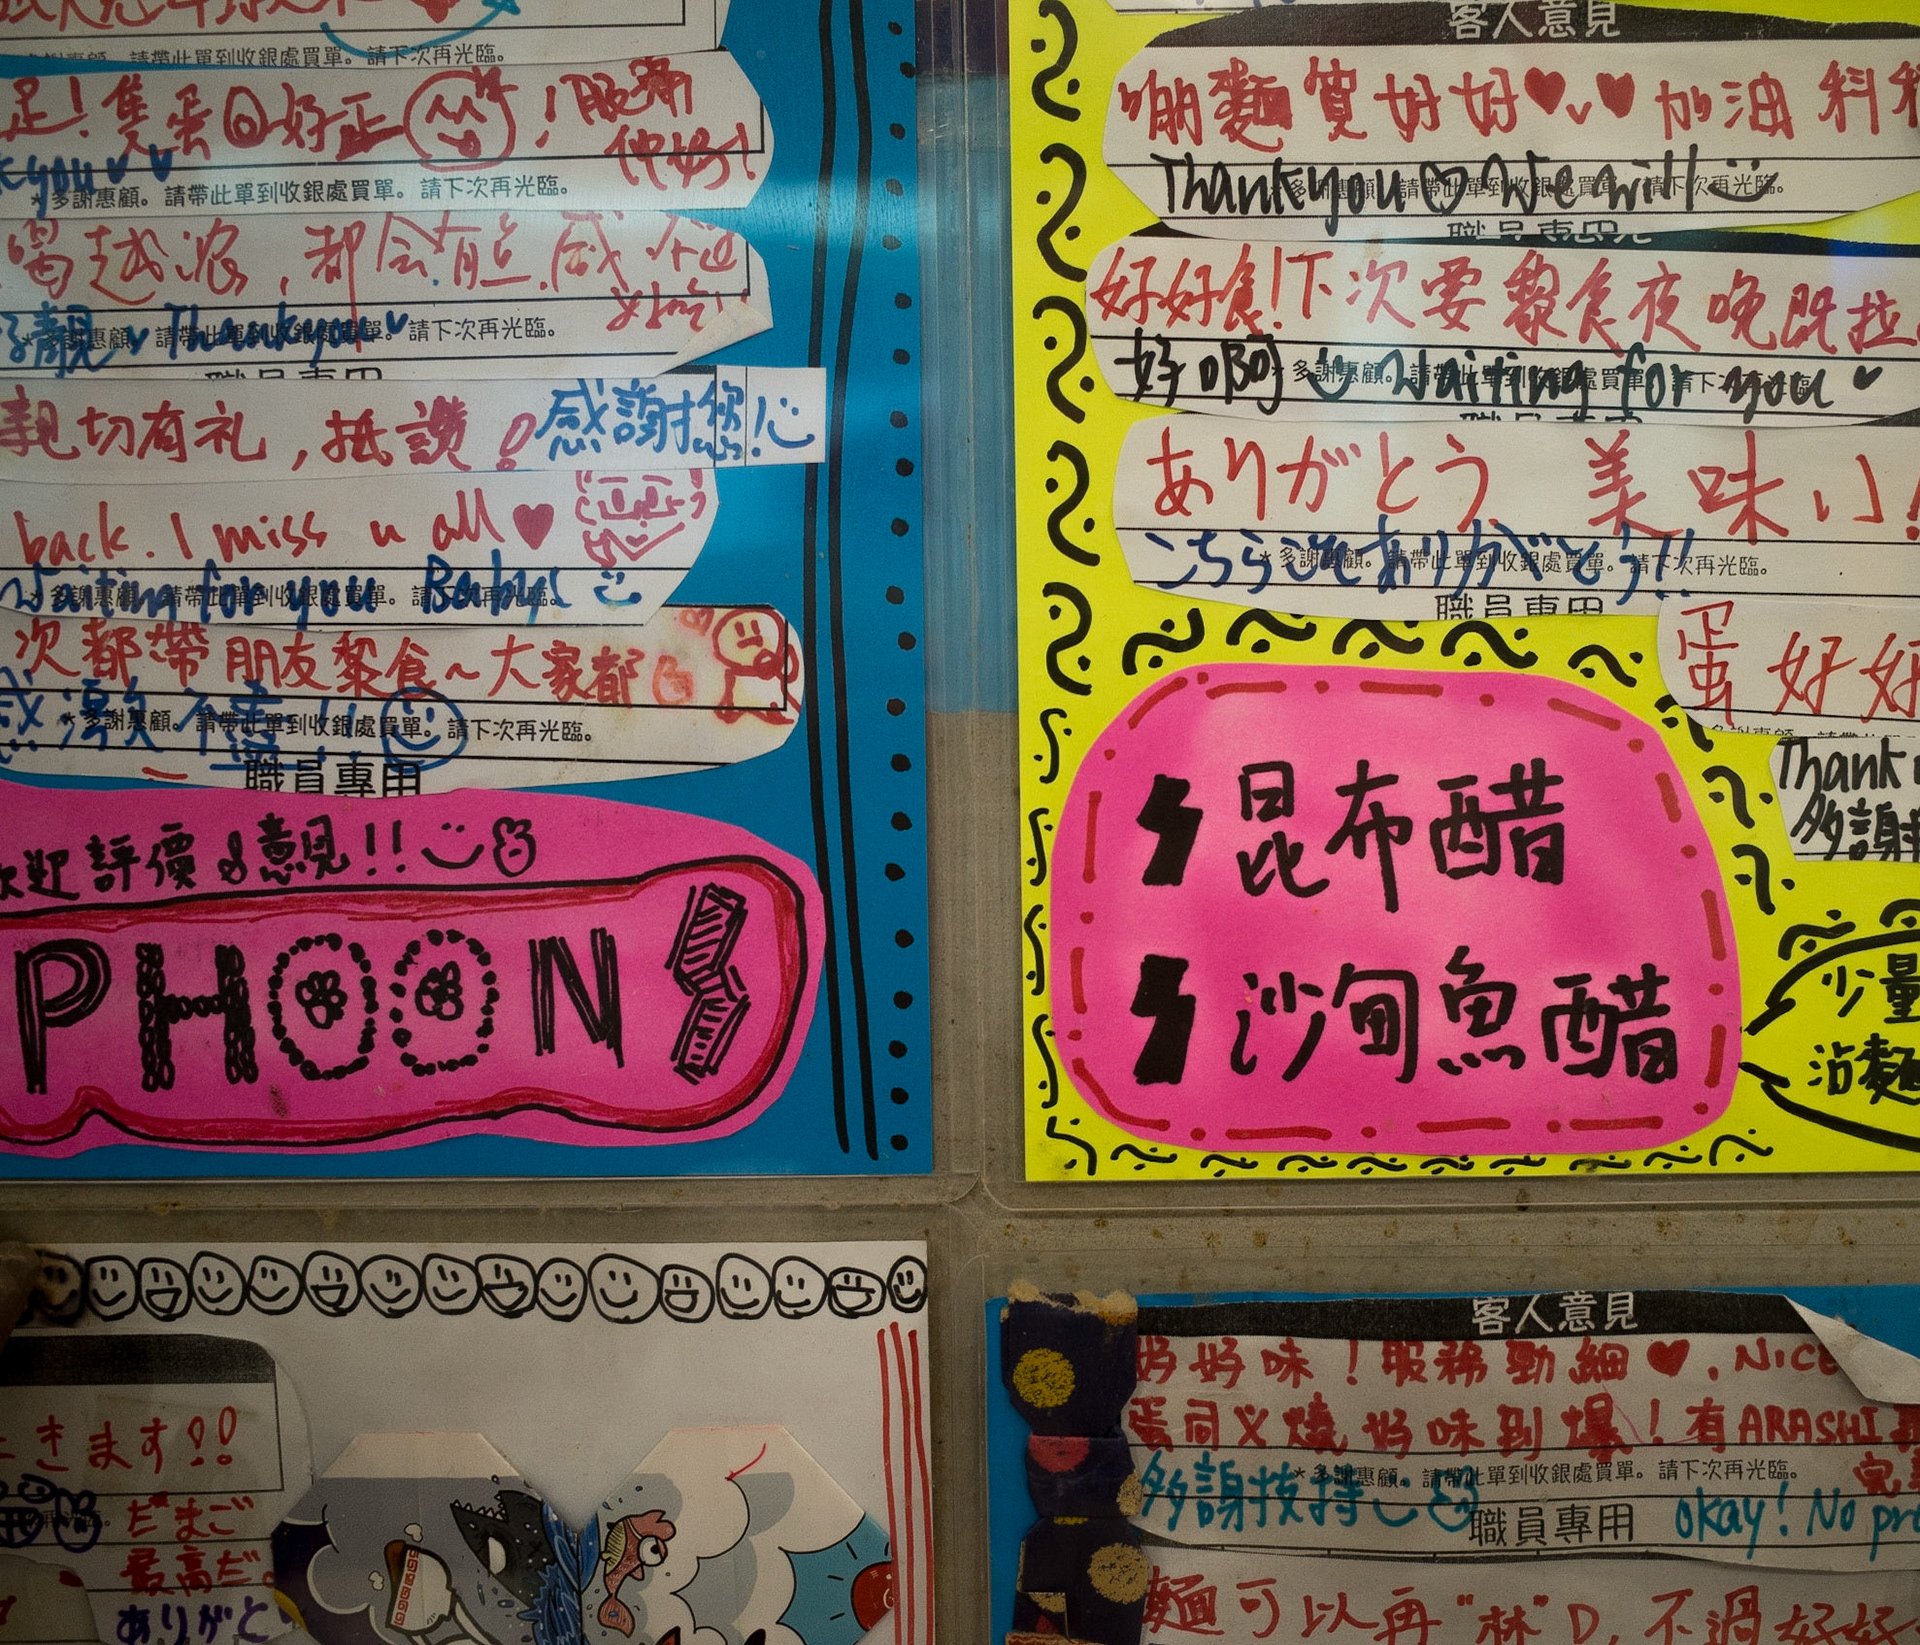 多謝惠顧。請帶此單到收銀處買單。請下次再光臨。
足!隻蛋好正!服務
你好!
k you
*多謝惠顧。請帶此單到收銀處買單。請下次再光臨。
喝越浓,都会有点感
好吃!
Thank you
*多謝惠顧。請帶此單到收銀處買單。請下次再光臨。
職員專用
親切有礼,抵讚!感謝您!
back. I miss u all
Waiting for you Baby!
*多謝惠顧。請帶此單到收銀處買單。請下次再光臨。
次都帶朋友黎食~大家都
感激不盡!!
*多謝惠顧。請帶此單到收銀處買單。請下次再光臨。
職員專用
歡迎評價&意見!!
PHOON
客人意見
啲麵質好好♥v♥加油
Thank you We will
*多謝惠顧。請帶此單到收銀處買單。請下次再光臨。
職員專用
好好食!下次要黎食夜晚既拉
好啊 Waiting for you
*多謝惠顧。請帶此單到收銀處買單。請下次再光臨。
職員專用
ありがとう 美味い!
こちらこそありがとう!!
*多謝惠顧。請帶此單到收銀處買單。請下次再光臨。
職員專用
蛋好好
Thank
多謝
昆布醋
沙甸魚醋
少量
沾麵
きます!!
だまご
最高だ。
ありがと
客人意見
好好味!服務勁細♥. NICE
蛋同叉燒好味到爆!有ARASHI
多謝支持
*多謝惠顧。請帶此單到收銀處買單。請下次再光臨。
職員專用
okay! No pr
麵可以再"林"D,不過好好